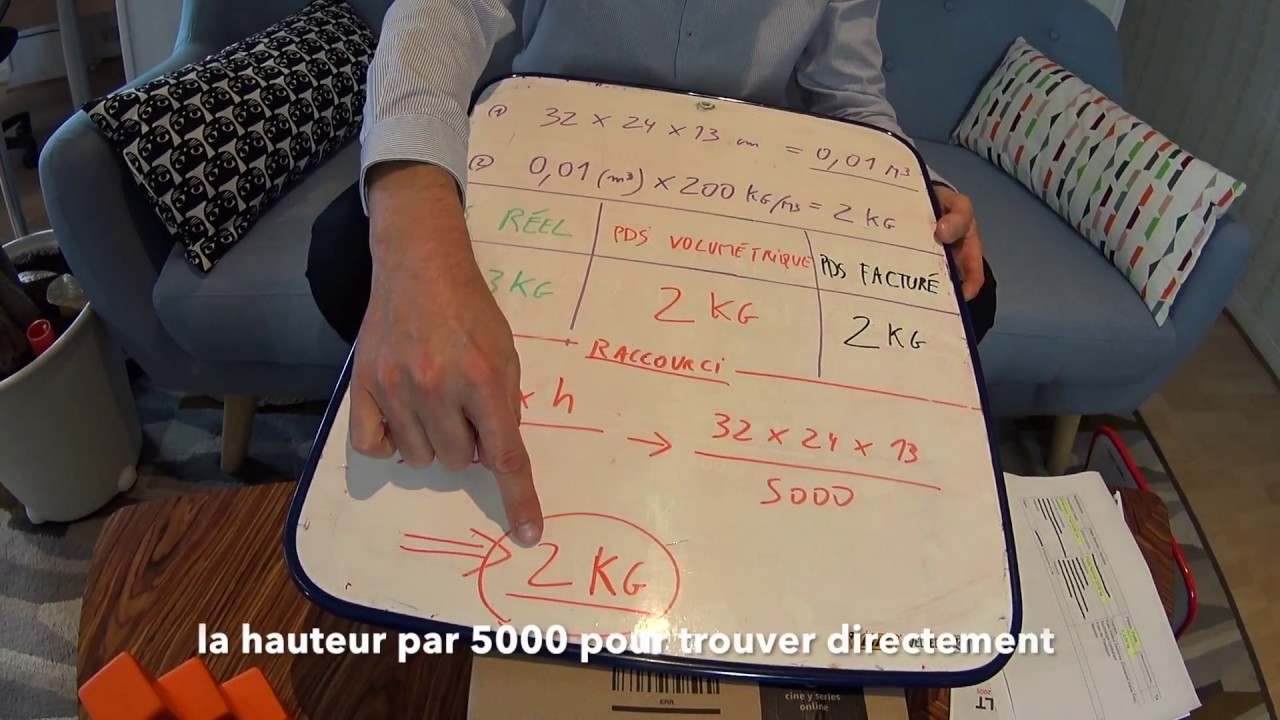 ① 32 x 24 x 13 cm = 0,01 m³
② 0,01 (m³) x 200 KG/m³ = 2 KG
RÉEL PDS VOLUMÉTRIQUE PDS FACTURÉ
3 KG 2 KG 2 KG
RACCOURCI
x h → 32 x 24 x 13
5000
⇒ 2 KG
la hauteur par 5000 pour trouver directement
cine y series
online
LT
2005